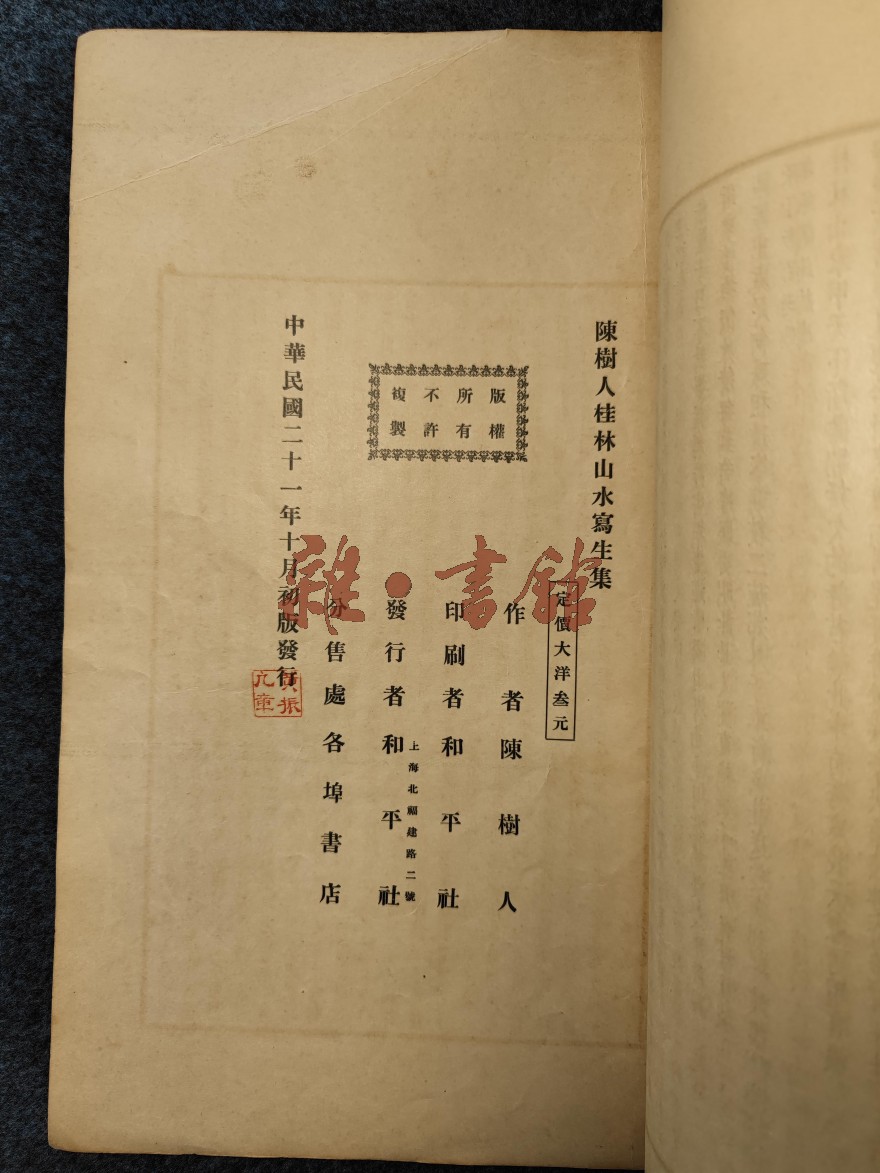 陳樹人桂林山水寫生集
定價大洋叁元
版權
所有
不許
複製
作者陳樹人
印刷者和平社
上海北福建路二號
發行者和平社
分售處各埠書店
中華民國二十一年十月初版發行
雜·書館